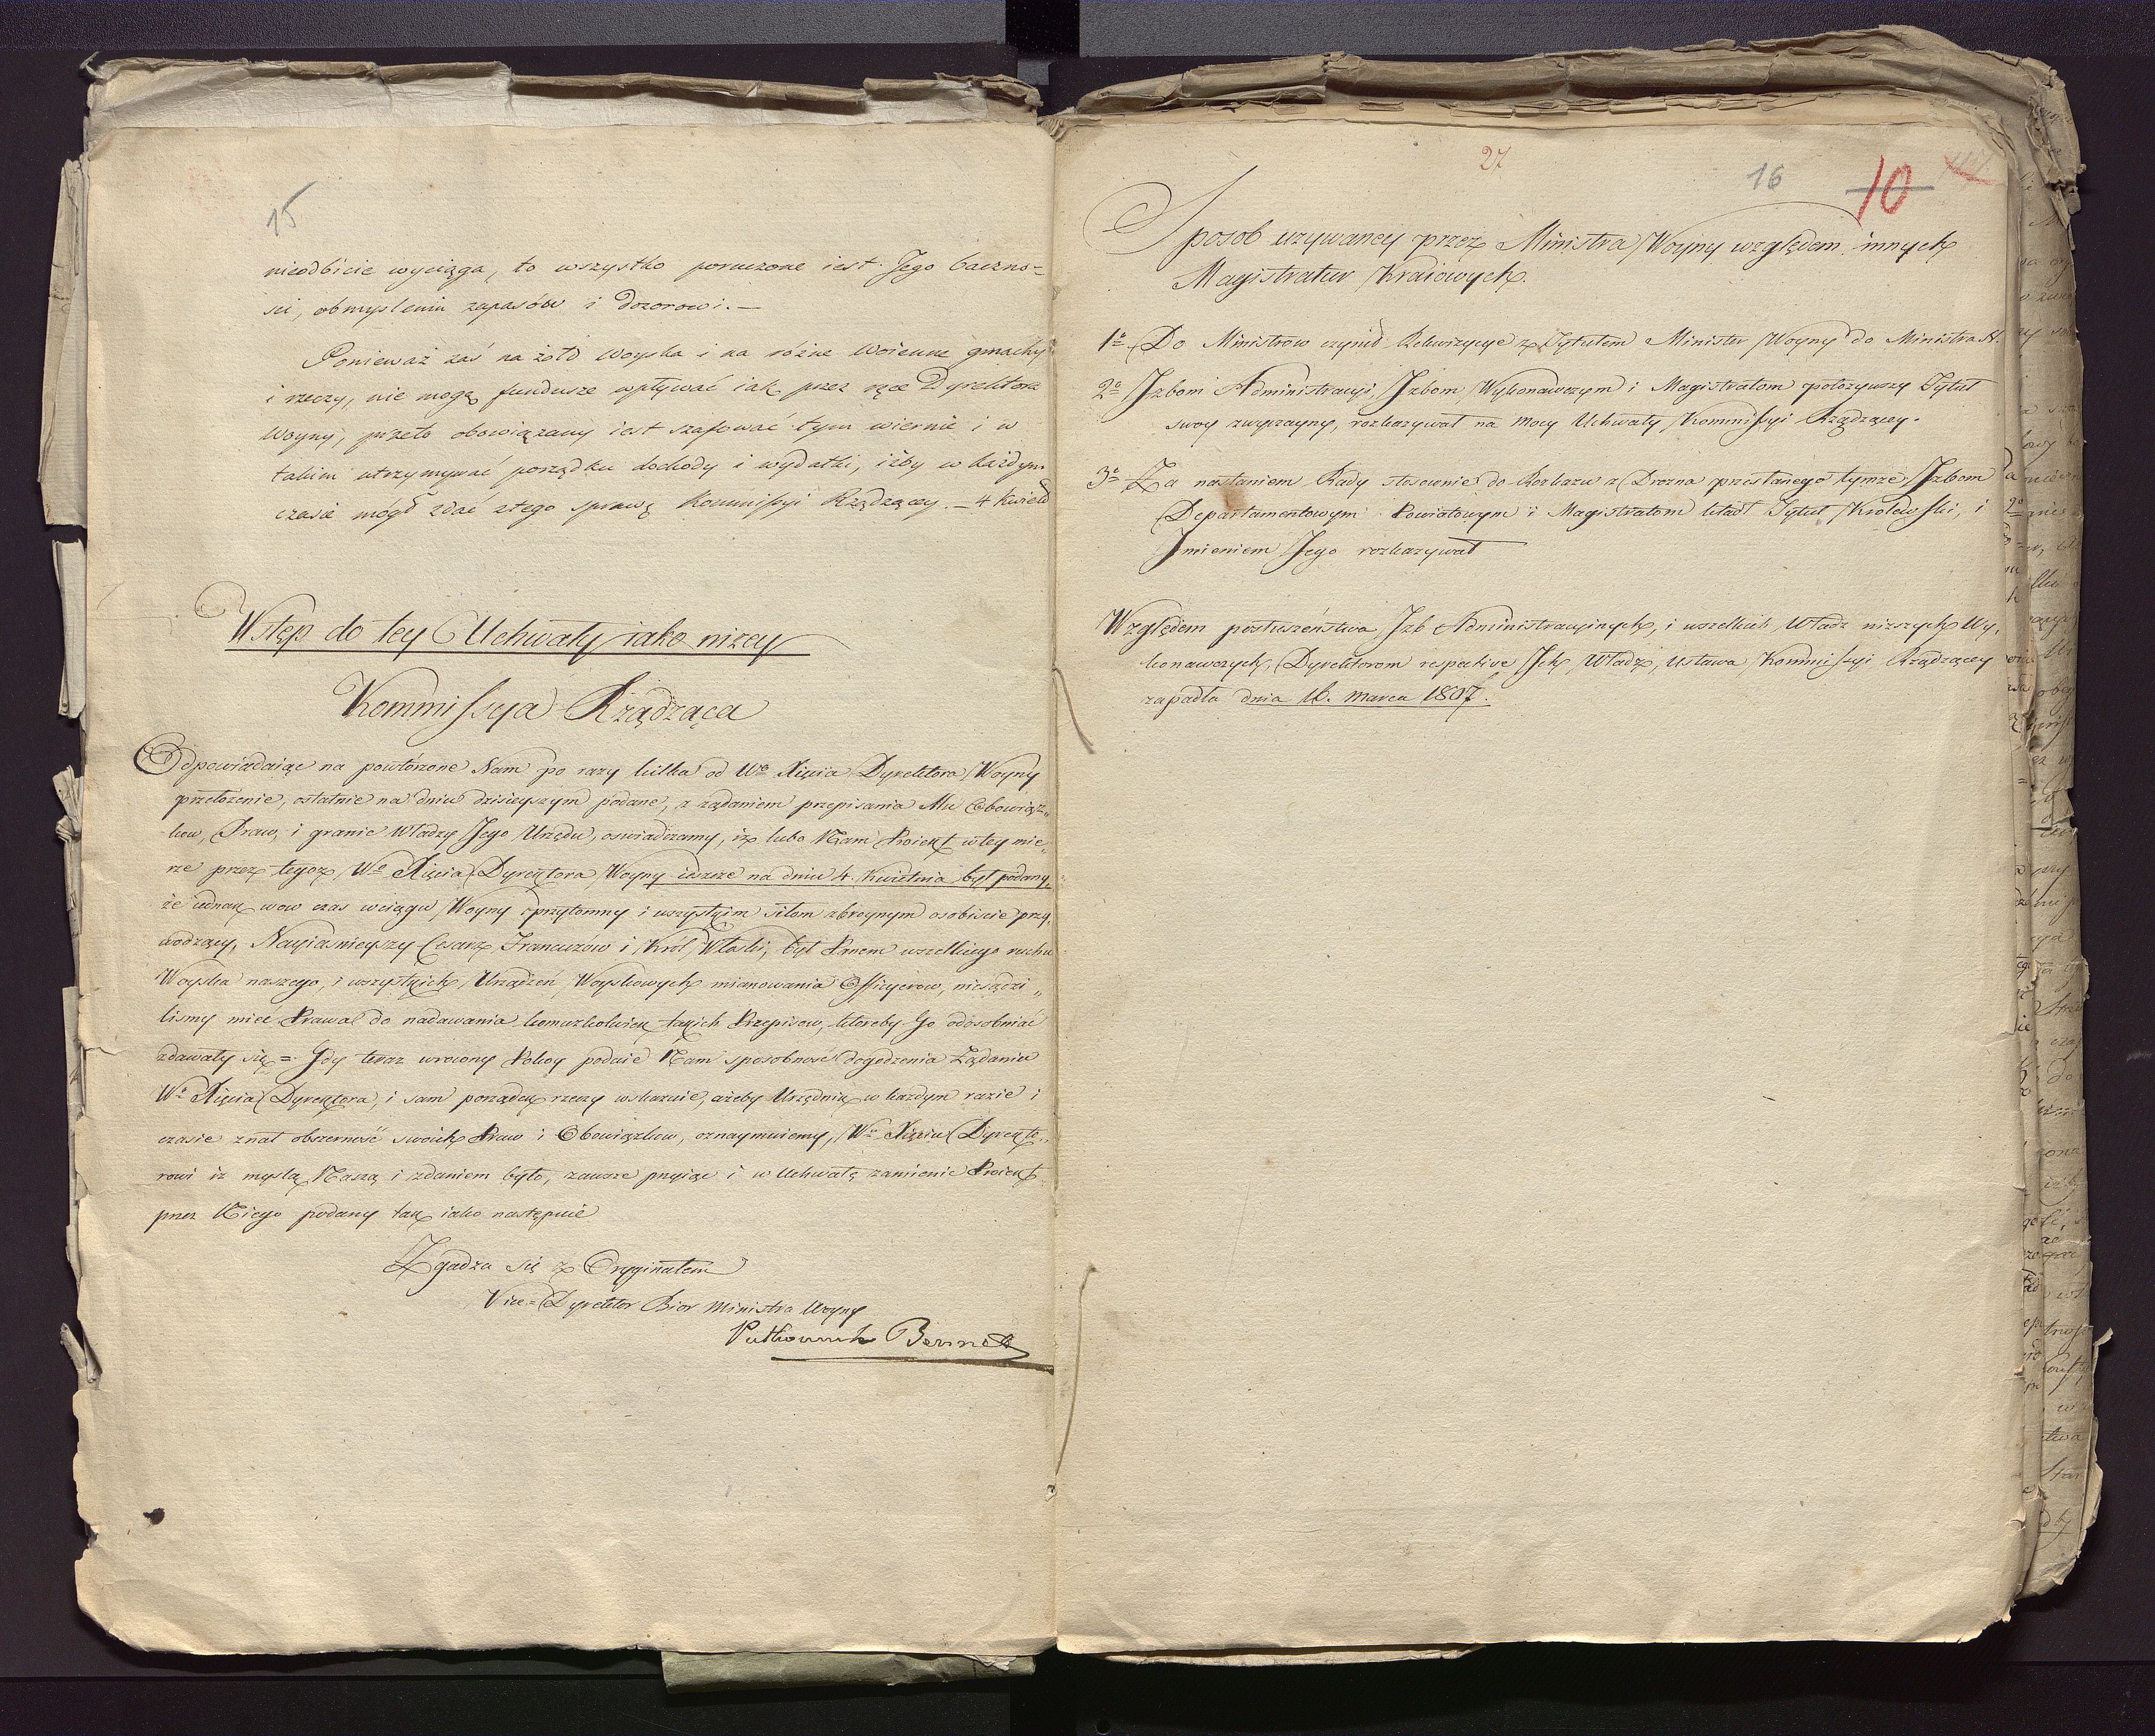 15
nieodbicie wyciąga, to wszystko poruczone iest Jego baczno=
sci, obmysleniu zapasów i dozorowi. —
Ponieważ zaś na żołd woyska i na różne woienne gmachy
i rzeczy, nie mogą fundusze wpływać iak przez ręce Dyrektora
Woyny, przeto obowiązany iest szafować tym wiernie i w
takim utrzymywać porządku dochody i wydatki, iżby w każdym
czasie mógł zdać z tego sprawę Kommissyi Rządzącey. — 4 Kwiet
Wstęp do tey Uchwały iako niżey
Kommissya Rządząca
Odpowiadaiąc na powtórzone Nam po razy kilka od Wo Xięcia Dyrektora Woyny
przełożenie, ostatnie na dniu dzisieyszym podane, z żądaniem przepisania Mu Obowiąz„
kow, Praw, i granic Władzy Jego Urzędu, oswiadczamy, iż lubo Nam Proiekt w tey mie„
rze przez tegoż Wo Xięcia Dyrektora Woyny ieszcze na dniu 4. Kwietnia był podany,
że iednak wow czas wciągu Woyny przytomny i wszystkim siłom zbroynym osobiscie przy„
wodzący, Nayiasnieyszy Cesarz Francuzów i Król Włoski, był Panem wszelkiego ruchu
Woyska naszego, i wszystkich Urządzeń Woyskowych mianowania Officyerow, niesądzi„
lismy miec Prawa do nadawania komużkolwiek takich Przepisow, któreby Go odosobniać
zdawały się = Gdy teraz wrocony Pokoy podaie Nam sposobność dogodzenia Żądaniu
Wo Xięcia Dyrektora, i sam porządek rzeczy wskazuie, ażeby Urzędnik w każdym razie i
czasie znał obszerność swoich Praw i Obowiązkow, oznaymuiemy, Wu Xięciu Dyrekto„
rowi iż myslą Naszą i zdaniem było, zawsze przyiąc i w Uchwałę zamienic Proiekt
przez Niego podany tak iako następuie
Zgadza się z Oryginałem
Vice=Dyrektor Bior Ministra Woyny
Pułkownik Bennet
27
16
10
Sposob uzywaney przez Ministra Woyny względem innych
Magistratur Kraiowych.
1o Do Ministrow czynił Rekwizycye z Tytułem Minister Woyny do Ministra N.
2o Izbom Administracyi, Izbom Wykonawczym i Magistratom położywszy Tytuł
swoy zwyczayny, rozkazywał na mocy Uchwały Kommissyi Rządzącey.
3o Za nastaniem Rady stosownie do Rozkazu z Drezna przesłanego tymże Izbom
Departamentowym Powiatowym i Magistratom kładł Tytuł Krolewski, i
Jmieniem Jego rozkazywał
Względem posłuszeństwa, Izb Administracyinych, i wszelkich Władz niższych Wy„
konawczych, Dyrektorom respective Ich Władz, ustawa Kommissyi Rządzącey
zapadła dnia 16. marca 1807.